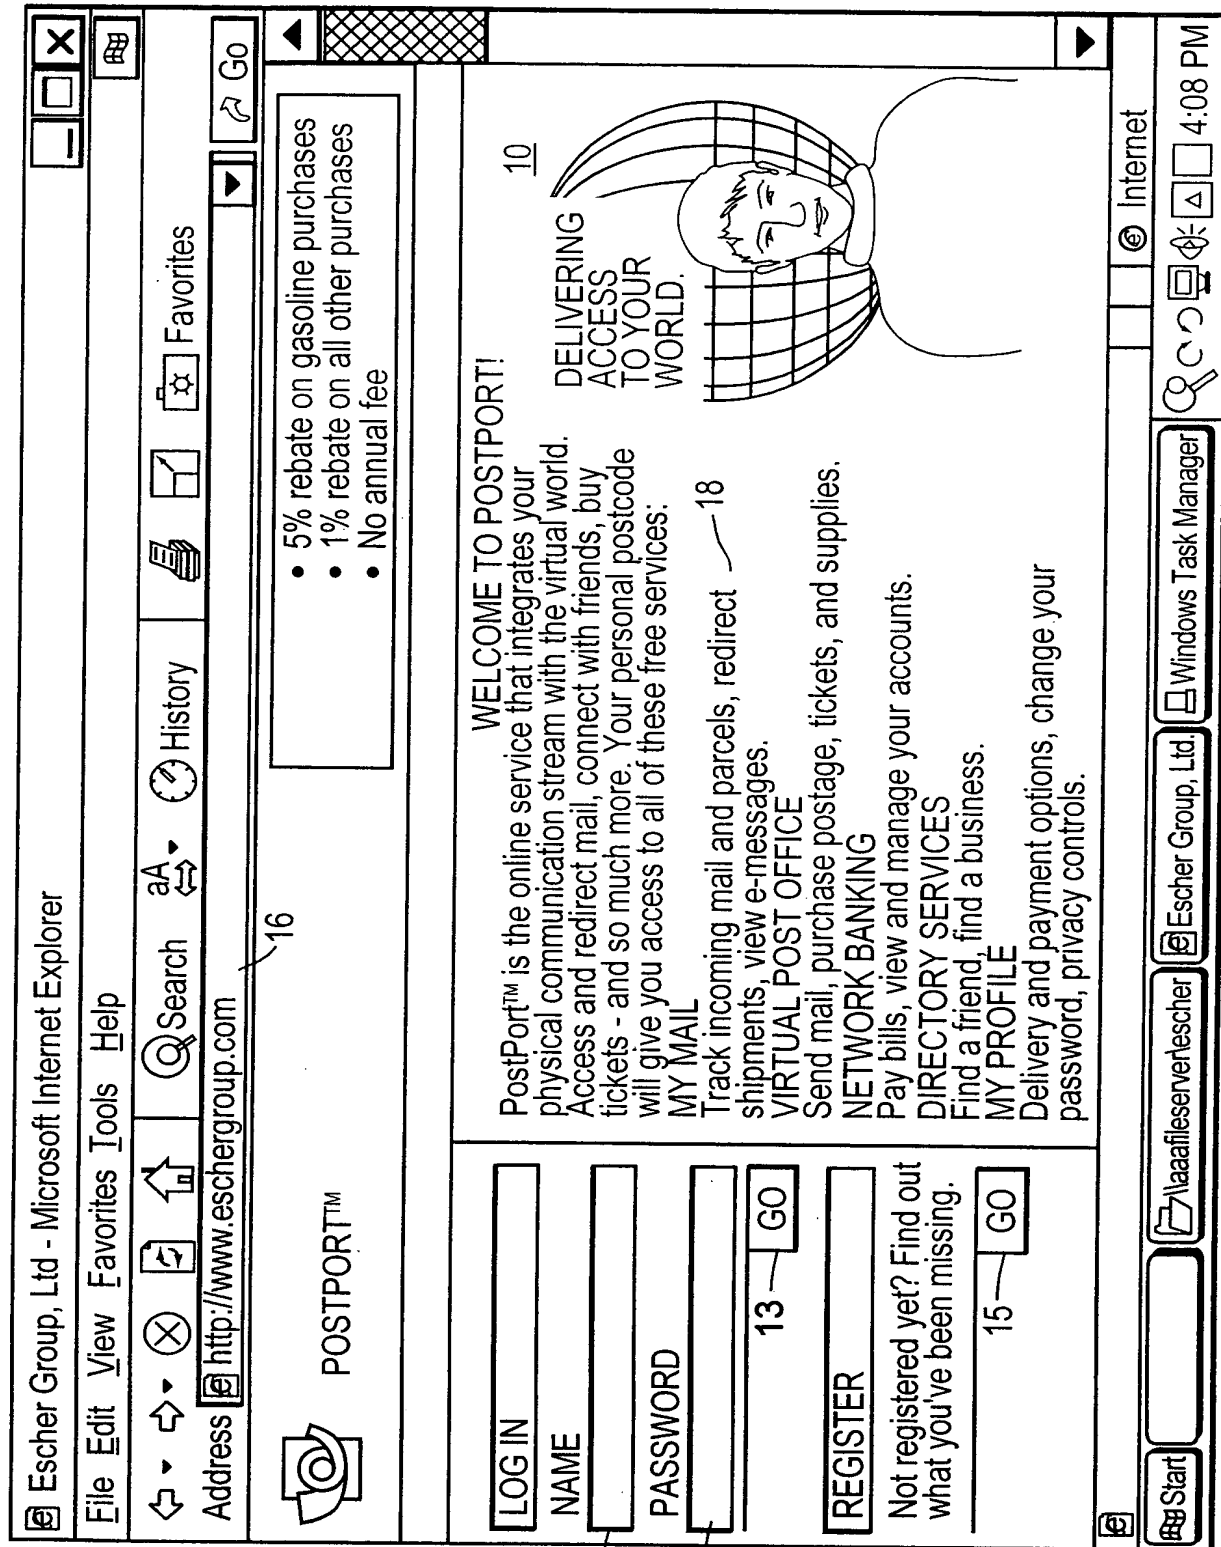 Escher Group, Ltd - Microsoft Internet Explorer
File Edit View Favorites Tools Help
Search aA History Favorites
Address http://www.eschergroup.com Go
16
POSTPORT™
• 5% rebate on gasoline purchases
• 1% rebate on all other purchases
• No annual fee
LOG IN
NAME
PASSWORD
13 GO
REGISTER
Not registered yet? Find out
what you've been missing.
15 GO
WELCOME TO POSTPORT!
PostPort™ is the online service that integrates your
physical communication stream with the virtual world.
Access and redirect mail, connect with friends, buy
tickets - and so much more. Your personal postcode
will give you access to all of these free services:
MY MAIL
Track incoming mail and parcels, redirect 18
shipments, view e-messages.
VIRTUAL POST OFFICE
Send mail, purchase postage, tickets, and supplies.
NETWORK BANKING
Pay bills, view and manage your accounts.
DIRECTORY SERVICES
Find a friend, find a business.
MY PROFILE
Delivery and payment options, change your
password, privacy controls.
10
DELIVERING
ACCESS
TO YOUR
WORLD.
Internet
Start \\aaafileserver\escher Escher Group, Ltd. Windows Task Manager 4:08 PM